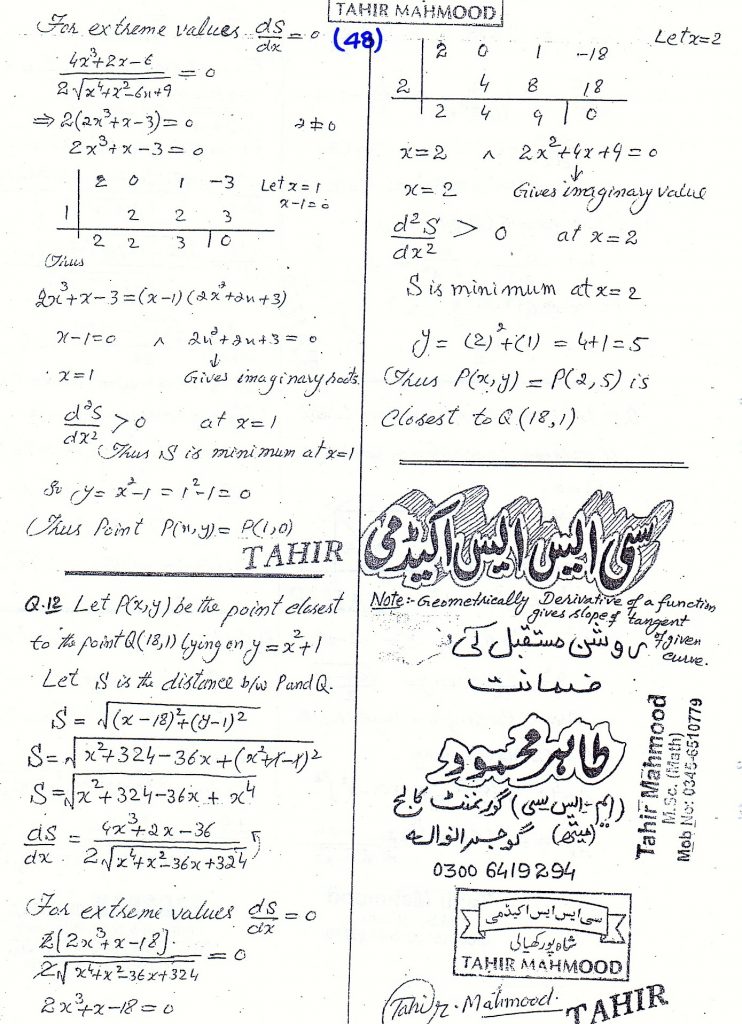 TAHIR MAHMOOD
(48)
For extreme values dS/dx = 0
4x³+2x-6 / 2√x⁴+x²-6x+9 = 0
⇒ 2(2x³+x-3) = 0 2≠0
2x³+x-3 = 0
2 0 1 -3 Let x=1
x-1=0
1 2 2 3
2 2 3 0
Thus
2x³+x-3 = (x-1)(2x²+2x+3)
x-1=0 ∧ 2x²+2x+3 = 0
↓
x=1 Gives imaginary roots.
d²S/dx² > 0 at x=1
Thus S is minimum at x=1
So y = x²-1 = 1²-1 = 0
Thus Point P(x,y) = P(1,0)
TAHIR
Q.12 Let P(x,y) be the point closest
to the point Q(18,1) lying on y = x²+1
Let S is the distance b/w P and Q.
S = √(x-18)²+(y-1)²
S = √x²+324-36x+(x²+1-1)²
S = √x²+324-36x+x⁴
dS/dx = 4x³+2x-36 / 2√x⁴+x²-36x+324
For extreme values dS/dx = 0
2[2x³+x-18] / 2√x⁴+x²-36x+324 = 0
2x³+x-18 = 0
Let x=2
2 0 1 -18
2 4 8 18
2 4 9 0
x=2 ∧ 2x²+4x+9 = 0
↓
x=2 Gives imaginary value
d²S/dx² > 0 at x=2
S is minimum at x=2
y = (2)²+(1) = 4+1 = 5
Thus P(x,y) = P(2,5) is
closest to Q(18,1)
سی ایس ایس اکیڈمی
Note:- Geometrically Derivative of a function
gives slope of tangent
of given
curve.
روشن مستقبل کی
ضمانت
طاہر محمود
(ایم-ایس-سی) گورنمنٹ کالج
(میتھ) گوجرانوالہ
0300 6419294
Tahir Mahmood
M.Sc. (Math)
Mob No: 0345-6510779
سی ایس ایس اکیڈمی
شاہ پور کھیالی
TAHIR MAHMOOD
Tahir Mahmood
TAHIR